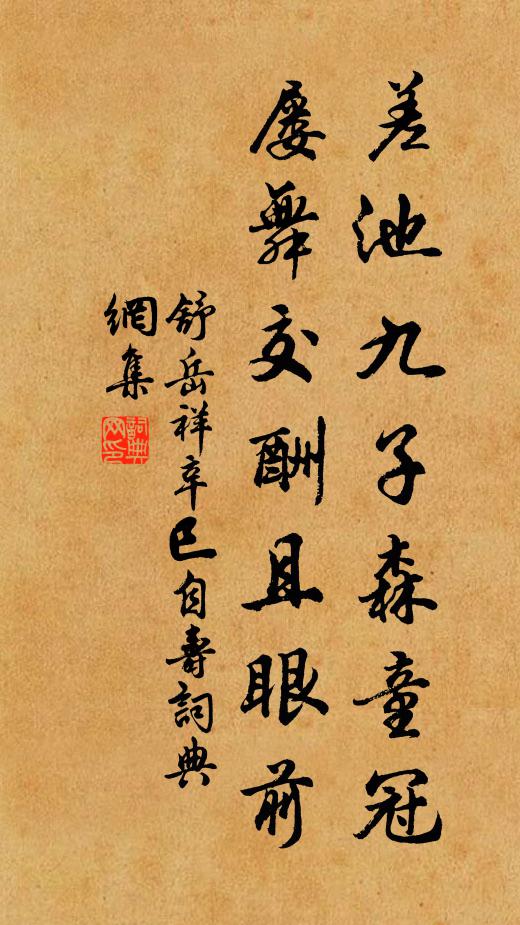 差池九子森童冠
屡舞交酬且眼前
舒岳祥辛巳自壽詞典
網集
詞典網印